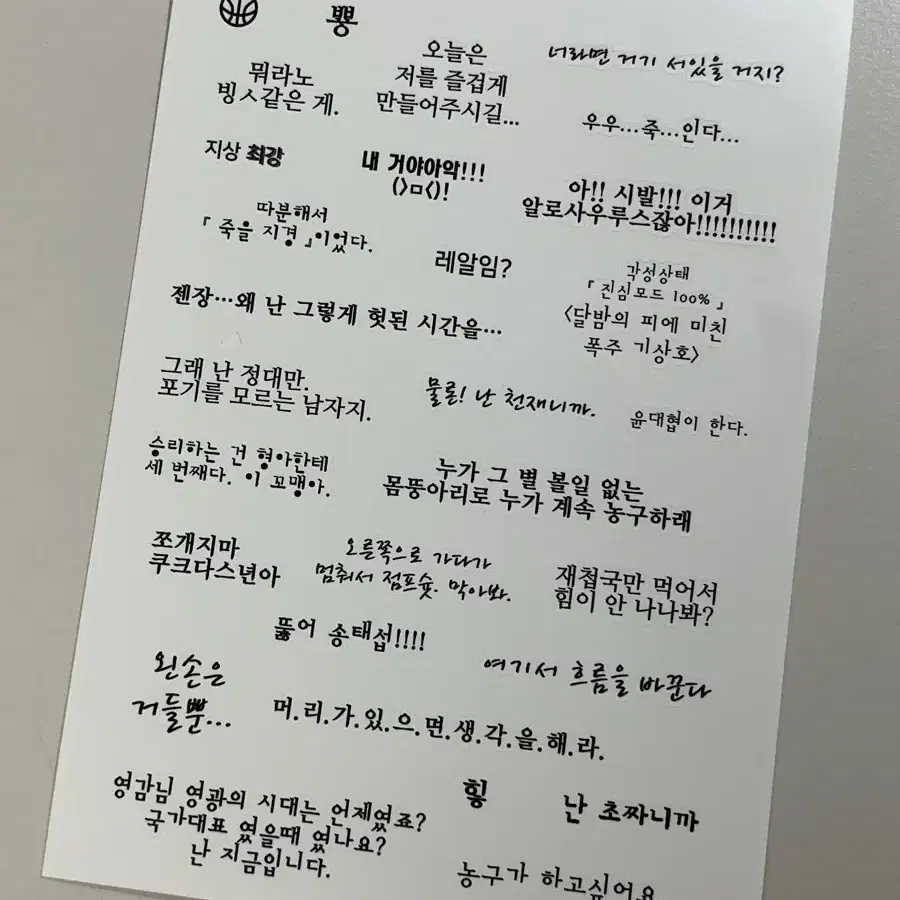 뿅
오늘은
저를 즐겁게
만들어주시길...
너라면 거기 서있을 거지?
뭐라노
빙ㅅ같은 게.
우우...죽...인다...
지상 최강
내 거야아악!!!
(>ㅁ<)!
아!! 시발!!! 이거
알로사우루스잖아!!!!!!!!!!
따분해서
『 죽을 지경 』이었다.
레알임?
각성상태
『 진심모드 100% 』
<달밤의 피에 미친
폭주 기상호>
젠장...왜 난 그렇게 헛된 시간을...
그래 난 정대만.
포기를 모르는 남자지.
물론! 난 천재니까.
윤대협이 한다.
승리하는 건 형아한테
세 번째다. 이 꼬맹아.
누가 그 별 볼일 없는
몸뚱아리로 누가 계속 농구하래
쪼개지마
쿠크다스년아
오른쪽으로 가다가
멈춰서 점프슛. 막아봐.
재첩국만 먹어서
힘이 안 나나봐?
뚫어 송태섭!!!!
왼손은
거들뿐...
여기서 흐름을 바꾼다
머.리.가.있.으.면.생.각.을.해.라.
영감님 영광의 시대는 언제였죠?
국가대표 였을때 였나요?
난 지금입니다.
힣
난 초짜니까
농구가 하고싶어요